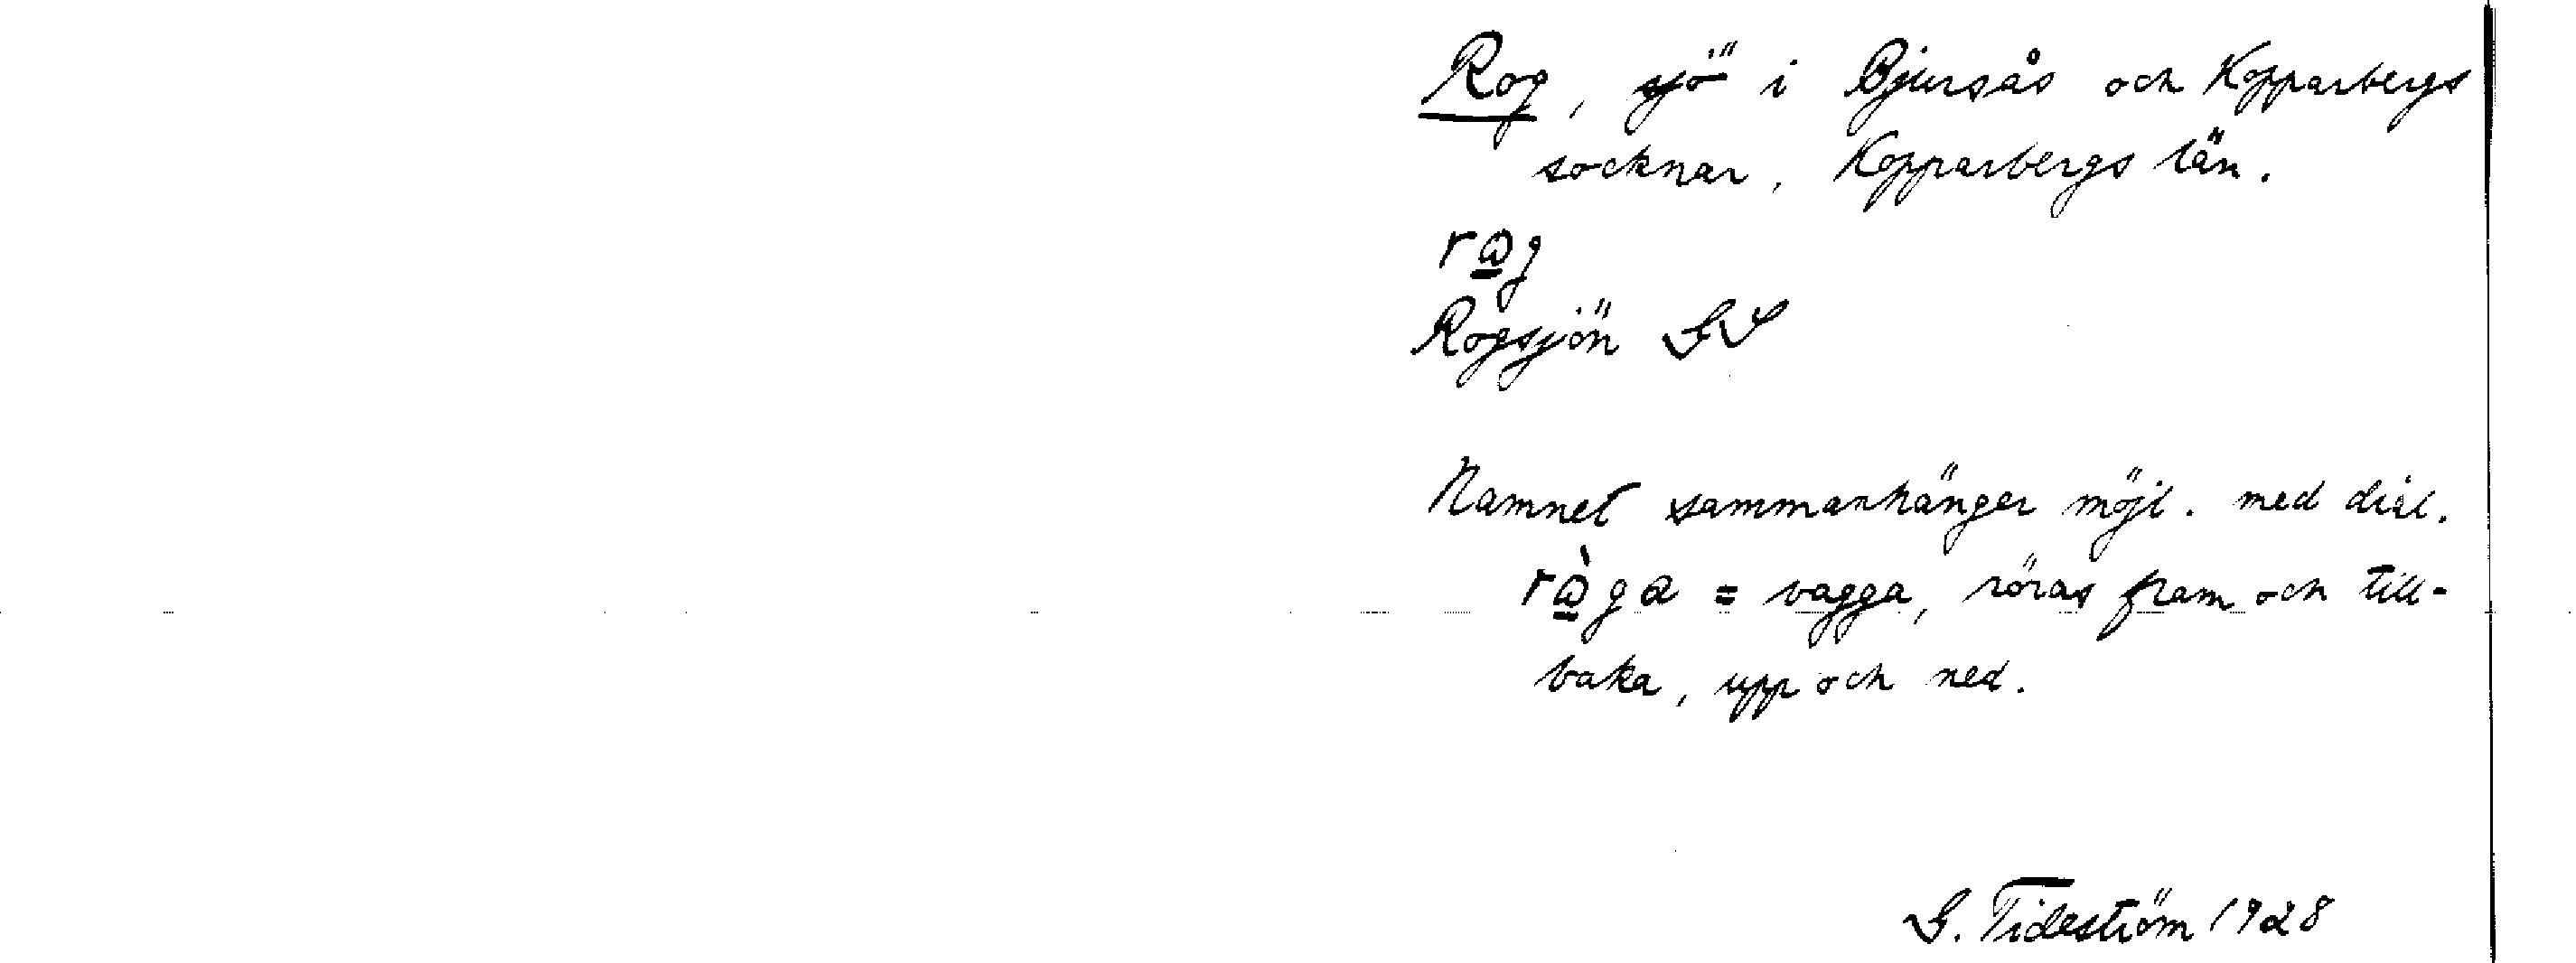 Rog, sjö i Bjursås och Kopparbergs
socknar, Kopparbergs län.
rωg
Rogsjön GS
Namnet sammanhänger möjl. med dial.
rὼga = vagga, röras fram och till-
baka, upp och ned.
G. Tideström 1928